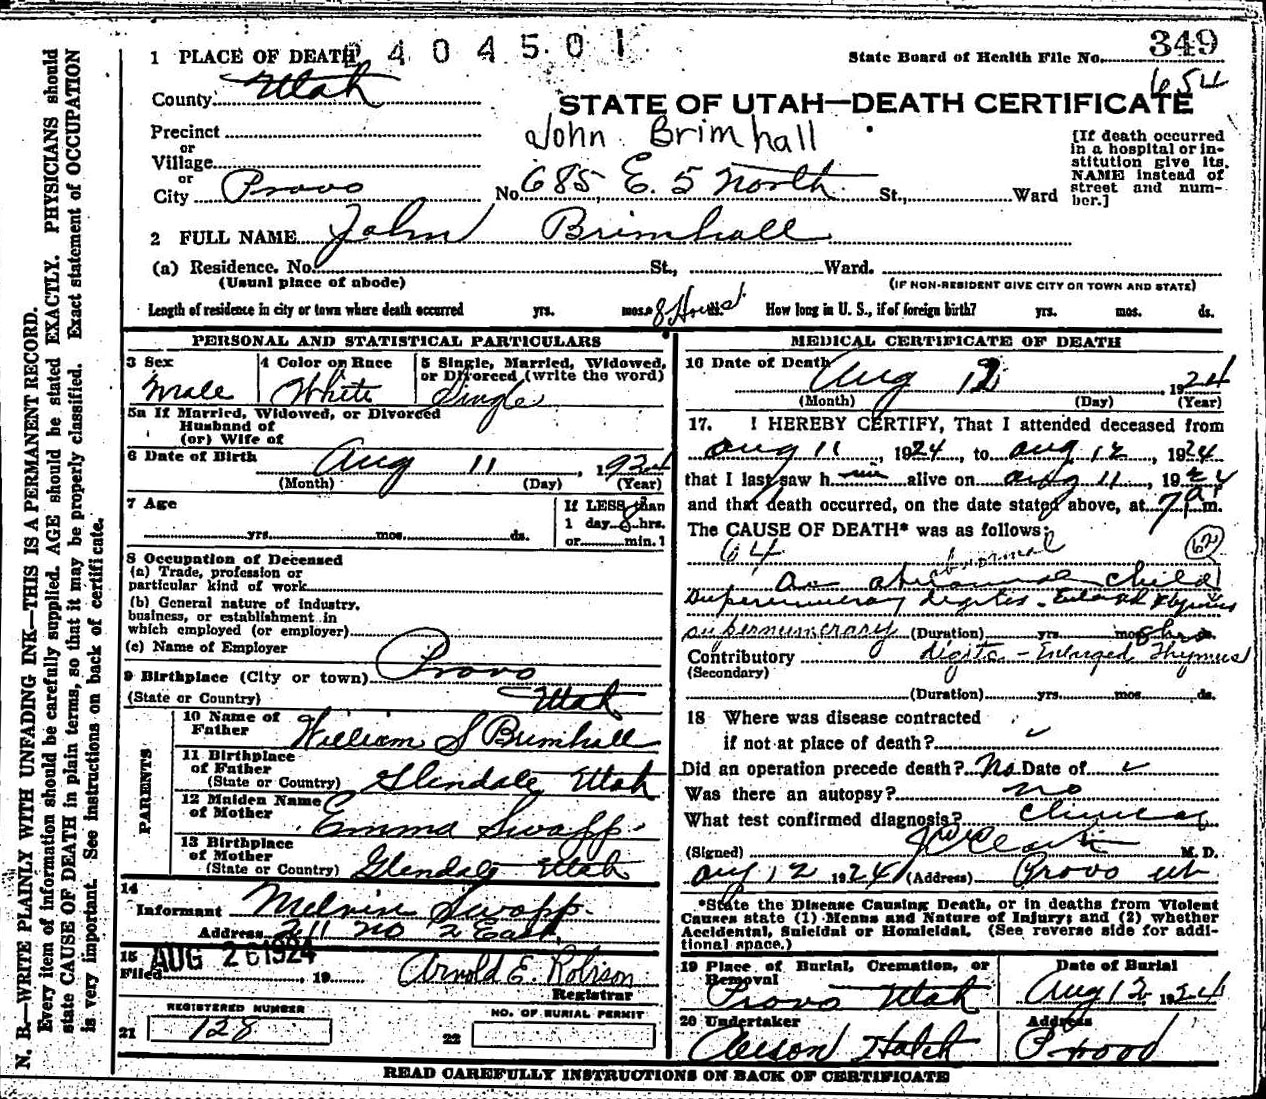 N. B.—WRITE PLAINLY WITH UNFADING INK—THIS IS A PERMANENT RECORD.
Every item of information should be carefully supplied. AGE should be stated EXACTLY. PHYSICIANS should
state CAUSE OF DEATH in plain terms, so that it may be properly classified. Exact statement of OCCUPATION
is very important. See instructions on back of certificate.
2404501
1 PLACE OF DEATH
State Board of Health File No. 349
654
County Utah
STATE OF UTAH—DEATH CERTIFICATE
Precinct
or
Village
or
City Provo
John Brimhall
No. 685 E. 5 North St., Ward
[If death occurred
in a hospital or in-
stitution give its
NAME instead of
street and num-
ber.]
2 FULL NAME John Brimhall
(a) Residence. No. St., Ward.
(Usual place of abode)
(IF NON-RESIDENT GIVE CITY OR TOWN AND STATE)
Length of residence in city or town where death occurred yrs. mos. 8 Hours ds. How long in U. S., if of foreign birth? yrs. mos. ds.
PERSONAL AND STATISTICAL PARTICULARS
3 Sex
Male
4 Color or Race
White
5 Single, Married, Widowed,
or Divorced (write the word)
Single
5a If Married, Widowed, or Divorced
Husband of
(or) Wife of
6 Date of Birth
Aug 11, 1924
(Month) (Day) (Year)
7 Age
yrs. mos. ds.
If LESS than
1 day 8 hrs.
or min.?
8 Occupation of Deceased
(a) Trade, profession or
particular kind of work
(b) General nature of industry,
business, or establishment in
which employed (or employer)
(c) Name of Employer
9 Birthplace (City or town) Provo
(State or Country) Utah
PARENTS
10 Name of
Father William S Brimhall
11 Birthplace
of Father
(State or Country) Glendale Utah
12 Maiden Name
of Mother Emma Swapp
13 Birthplace
of Mother
(State or Country) Glendale Utah
14
Informant Melvin Swapp
Address No 2 East
15
Filed AUG 26 1924, 19
Arnold E. Robison
Registrar
REGISTERED NUMBER
21 128
NO. OF BURIAL PERMIT
22
MEDICAL CERTIFICATE OF DEATH
16 Date of Death
Aug 12 1924
(Month) (Day) (Year)
17. I HEREBY CERTIFY, That I attended deceased from
Aug 11, 1924, to Aug 12, 1924
that I last saw h im alive on Aug 11, 1924
and that death occurred, on the date stated above, at 7 a m.
The CAUSE OF DEATH* was as follows:
64
abnormal
An abnormal child
Supernumerary digits - Enlarged Thymus
supernumerary (Duration) yrs. mos. 8 hrs ds.
Contributory digits - Enlarged Thymus
(Secondary)
(Duration) yrs. mos. ds.
18 Where was disease contracted
if not at place of death?
Did an operation precede death? No Date of
Was there an autopsy? no
What test confirmed diagnosis? Clinical
(Signed) M. D.
Aug 12 1924 (Address) Provo Ut
*State the Disease Causing Death, or in deaths from Violent
Causes state (1) Means and Nature of Injury; and (2) whether
Accidental, Suicidal or Homicidal. (See reverse side for addi-
tional space.)
19 Place of Burial, Cremation, or
Removal
Provo Utah
Date of Burial
Aug 12, 1924
20 Undertaker
Hatch
Address
Provo
READ CAREFULLY INSTRUCTIONS ON BACK OF CERTIFICATE